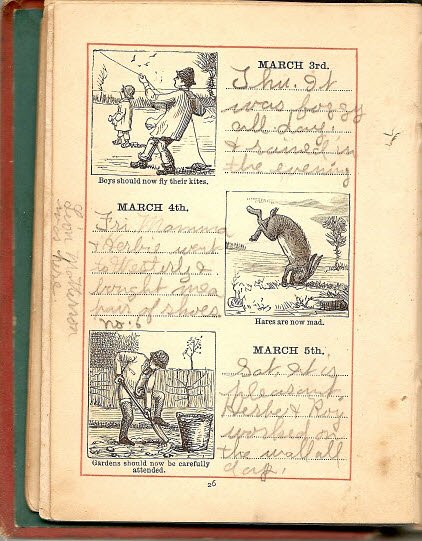 MARCH 3rd.
Thu. It
was foggy
all day
& rained in
the evening
Boys should now fly their kites.
MARCH 4th.
Fri Mamma
& Herbie went
to Westerly &
bought me a
pair of shoes
no. 6
Hares are now mad.
MARCH 5th.
Sat. It is
pleasant.
Herbe & Roy
worked on
the wall all
day.
Gardens should now be carefully
attended.
26